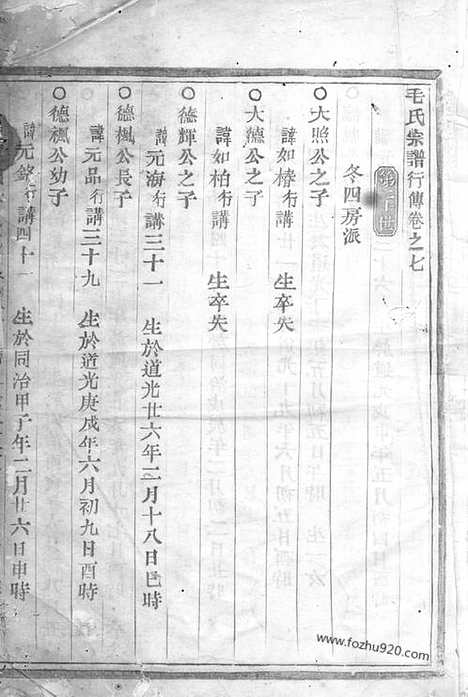 毛氏宗譜行傳卷之七
冬四房派
大照公之子
諱如椿行講 生卒失
大德公之子
諱如柏行講 生卒失
德輝公之子
諱元海行講三十一 生於道光廿六年三月十八日巳時
德楓公長子
諱元品行講三十九 生於道光庚戌年六月初九日酉時
德楓公幼子
諱元 行講四十一 生於同治甲子年二月廿六日申時
www.fozhu920.com